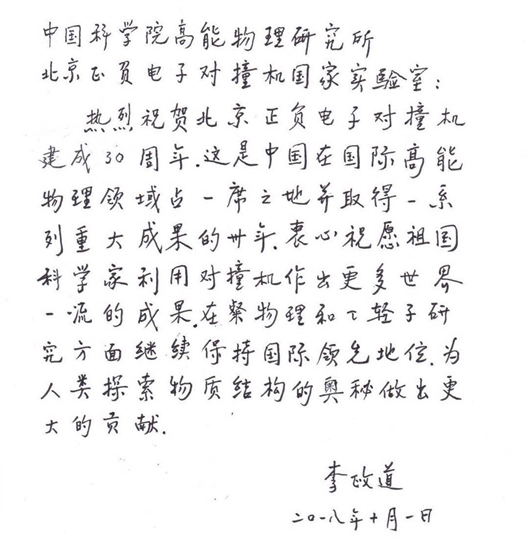 中国科学院高能物理研究所
北京正负电子对撞机国家实验室:
热烈祝贺北京正负电子对撞机
建成30周年.这是中国在国际高能
物理领域占一席之地并取得一系
列重大成果的卅年.衷心祝愿祖国
科学家利用对撞机作出更多世界
一流的成果.在粲物理和τ轻子研
究方面继续保持国际领先地位.为
人类探索物质结构的奥秘做出更
大的贡献.
李政道
二〇一八年十月一日